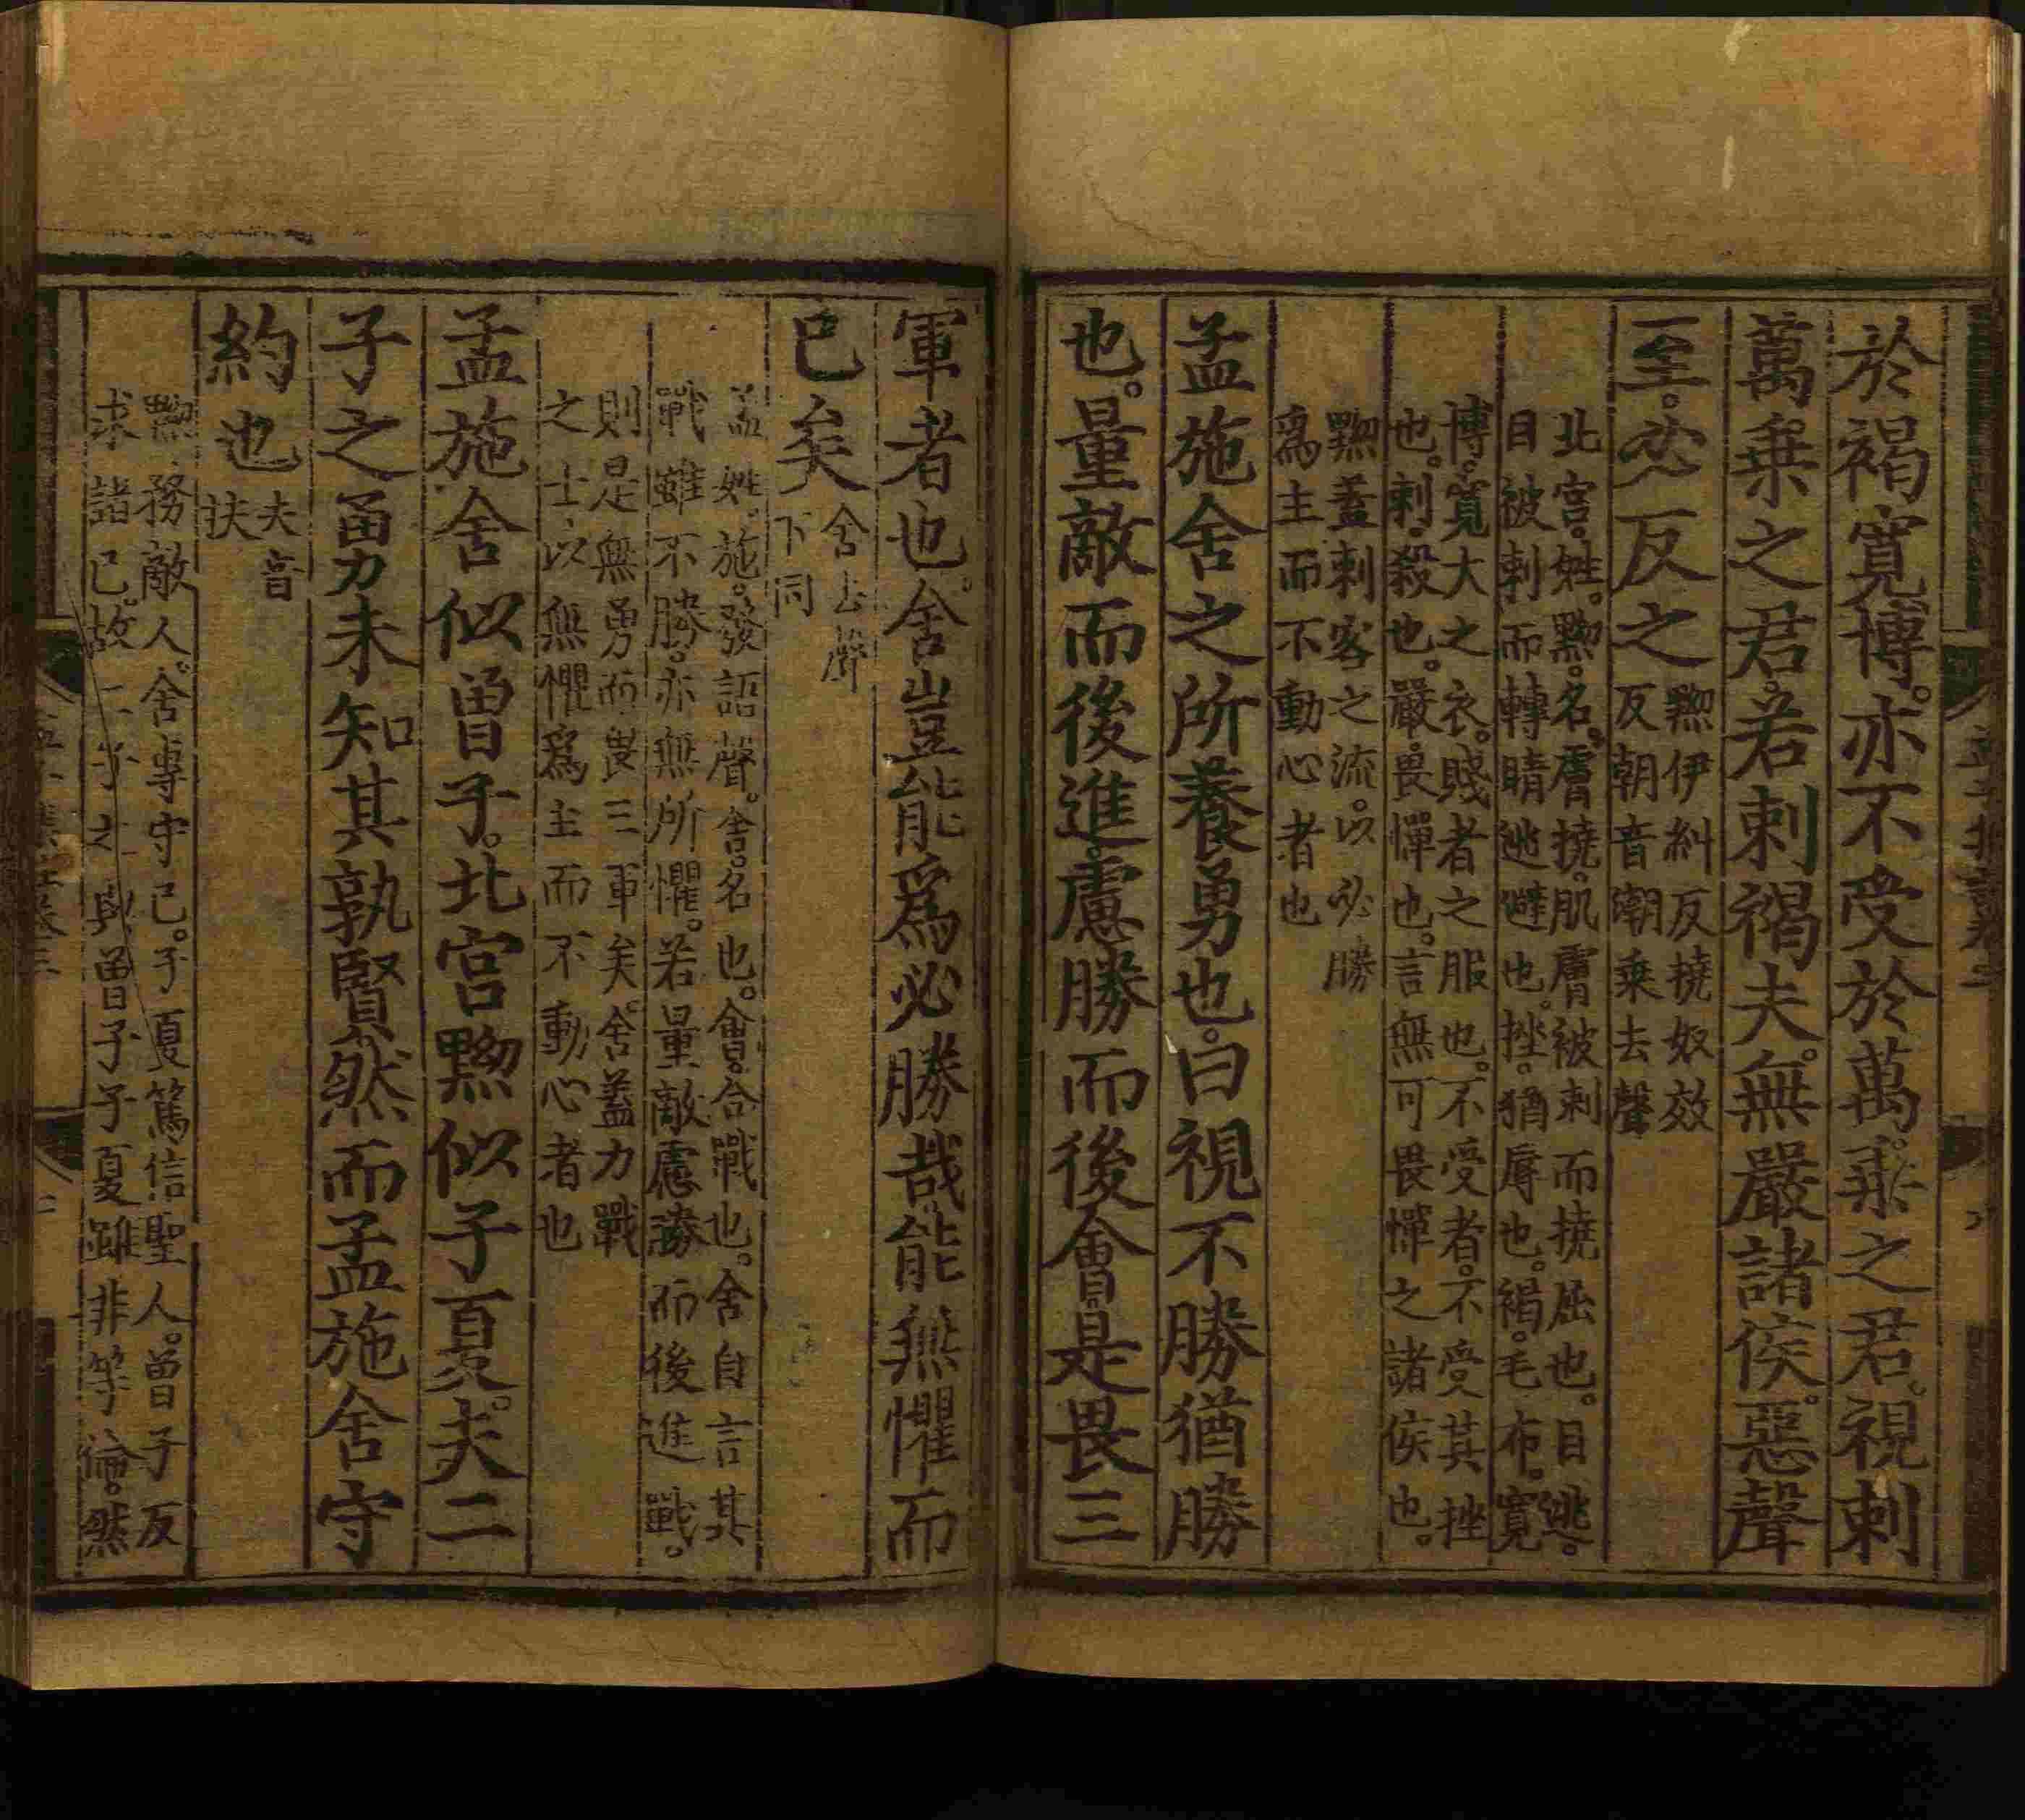 於褐寛博。亦不受於萬乘之君。視刺
萬乗之君。若刺褐夫。無嚴諸侯。惡聲
至。必反之
黝伊糾反撓奴效
反朝音潮乗去聲
北宫。姓。黝。名。膚撓。肌膚被刺而撓屈也。目逃。
目被刺而轉睛逃避也。挫。猶辱也。褐。毛布。寛
博。寛大之衣。賤者之服也。不受者。不受其挫
也。刺。殺也。嚴。畏憚也。言無可畏憚之諸侯也。
黝蓋刺客之流。以必勝
爲主而不動心者也
孟施舍之所養勇也。曰視不勝猶勝
也。量敵而後進。慮勝而後會。是畏三
軍者也。舍豈能爲必勝哉。能無懼而
已矣
舍去聲
下同
孟姓。施。發語聲。舍。名也。會。合戰也。舍自言其
戰雖不勝。亦無所懼。若量敵慮勝而後進戰。
則是無勇而畏三軍矣。舍蓋力戰
之士以無懼爲主而不動心者也
孟施舍似曾子。北宫黝似子夏。夫二
子之勇未知其孰賢。然而孟施舍守
約也
夫音
扶
黝務敵人。舍專守己。子夏篤信聖人。曾子反
求諸己。故二子之與曾子子夏雖非等倫。然